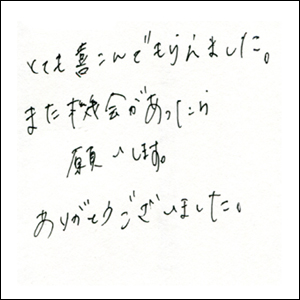 とても喜こんでもらえました。
また機会があったら
願いします。
ありがとうございました。